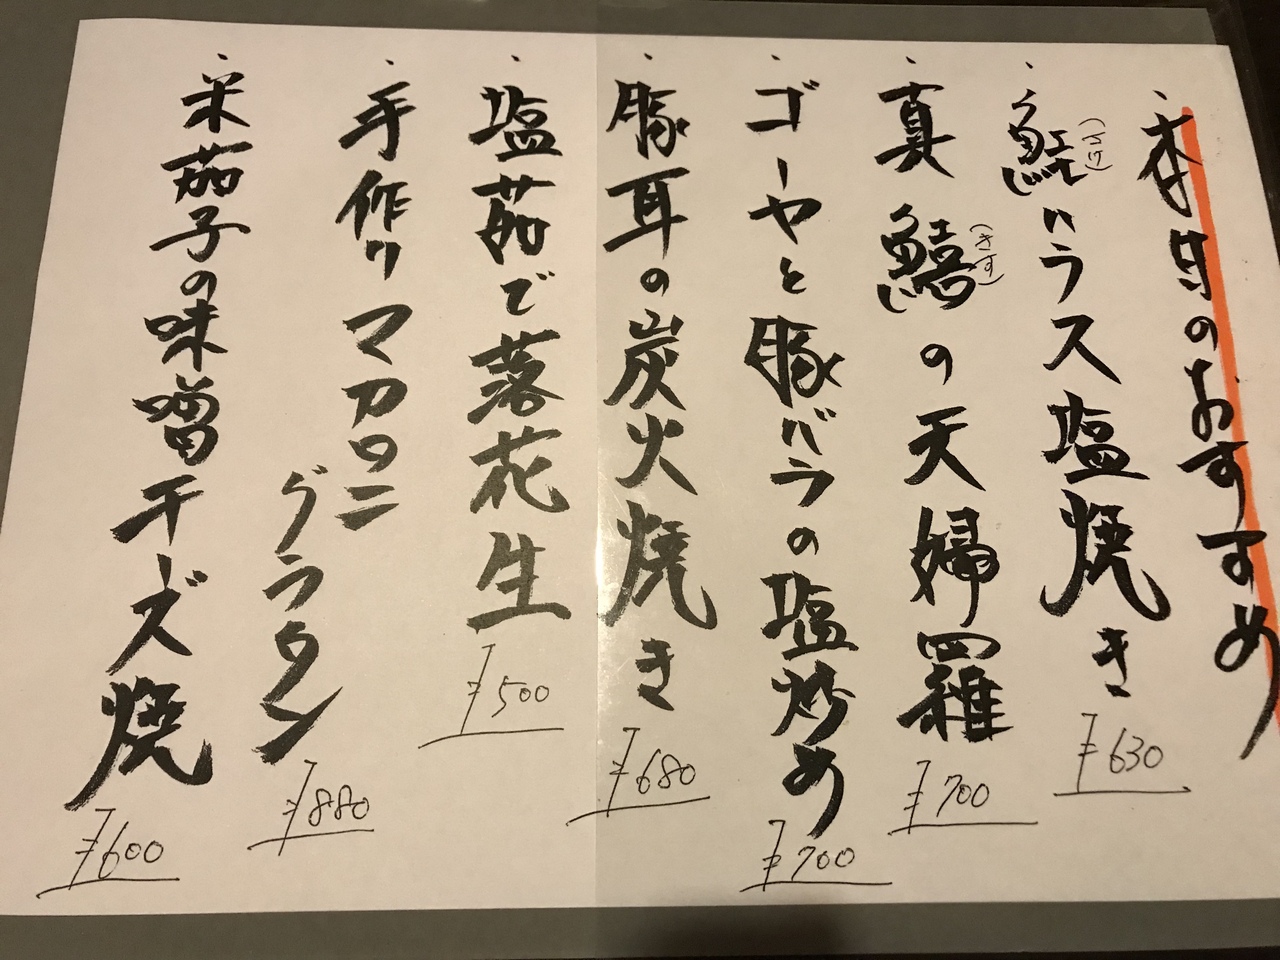 ・本日のおすすめ
・鮭(さけ)ハラス塩焼き ¥630
・真鱚(きす)の天婦羅 ¥700
・ゴーヤと豚バラの塩炒め ¥700
・豚耳の炭火焼き ¥680
・塩茹で落花生 ¥500
・手作りマカロニ
グラタン ¥880
・米茄子の味噌チーズ焼 ¥600